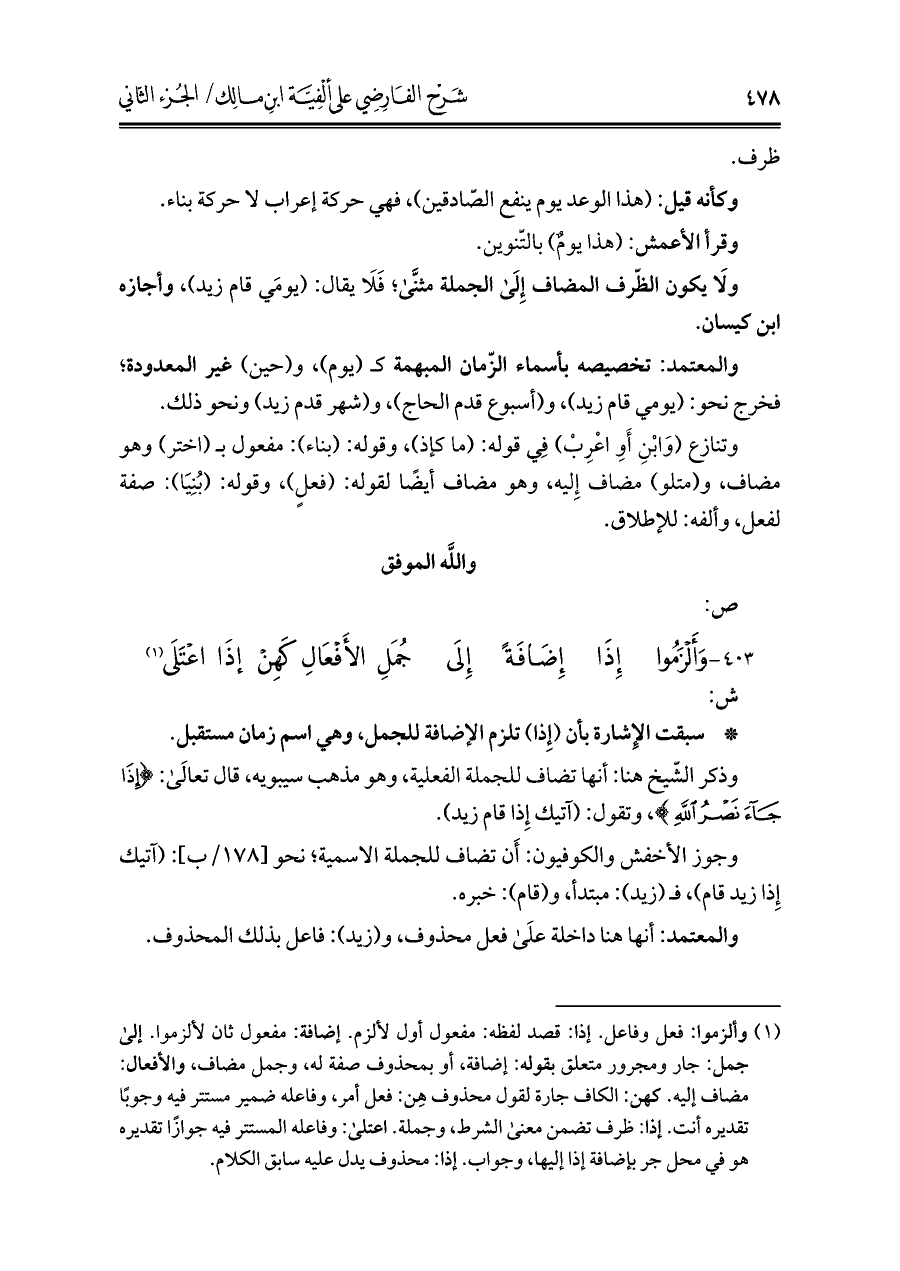 ٤٧٨ شرح الفارضي على ألفية ابن مالك/ الجزء الثاني
ظرف.
وكأنه قيل: (هذا الوعد يوم ينفع الصّادقين)، فهي حركة إعراب لا حركة بناء.
وقرأ الأعمش: (هذا يومٌ) بالتّنوين.
ولَا يكون الظّرف المضاف إِلَىٰ الجملة مثنًّىٰ؛ فَلَا يقال: (يومَي قام زيد)، وأجازه
ابن كيسان.
والمعتمد: تخصيصه بأسماء الزّمان المبهمة كـ (يوم)، و(حين) غير المعدودة؛
فخرج نحو: (يومي قام زيد)، و(أسبوع قدم الحاج)، و(شهر قدم زيد) ونحو ذلك.
وتنازع (وَابْنِ أَوِ اعْرِبْ) فِي قوله: (ما كإذ)، وقوله: (بناء): مفعول بـ (اختر) وهو
مضاف، و(متلو) مضاف إِليه، وهو مضاف أيضًا لقوله: (فعلٍ)، وقوله: (بُنِيَا): صفة
لفعل، وألفه: للإطلاق.
واللَّه الموفق
ص:
٤٠٣-وَأَلْزَمُوا إِذَا إِضَافَةً إِلَى جُمَلِ الأَفْعَالِ كَهِنْ إذَا اعْتَلَى(١)
ش:
* سبقت الإِشارة بأن (إِذا) تلزم الإضافة للجمل، وهي اسم زمان مستقبل.
وذكر الشّيخ هنا: أنها تضاف للجملة الفعلية، وهو مذهب سيبويه، قال تعالَىٰ: ﴿إِذَا
جَآءَ نَصْرُ ٱللَّهِ﴾، وتقول: (آتيك إِذا قام زيد).
وجوز الأخفش والكوفيون: أَن تضاف للجملة الاسمية؛ نحو [١٧٨/ ب]: (آتيك
إِذا زيد قام)، فـ (زيد): مبتدأ، و(قام): خبره.
والمعتمد: أنها هنا داخلة علَىٰ فعل محذوف، و(زيد): فاعل بذلك المحذوف.
(١) وألزموا: فعل وفاعل. إذا: قصد لفظه: مفعول أول لألزم. إضافة: مفعول ثان لألزموا. إلىٰ
جمل: جار ومجرور متعلق بقوله: إضافة، أو بمحذوف صفة له، وجمل مضاف، والأفعال:
مضاف إليه. كهن: الكاف جارة لقول محذوف هِن: فعل أمر، وفاعله ضمير مستتر فيه وجوبًا
تقديره أنت. إذا: ظرف تضمن معنىٰ الشرط، وجملة. اعتلىٰ: وفاعله المستتر فيه جوازًا تقديره
هو في محل جر بإضافة إذا إليها، وجواب. إذا: محذوف يدل عليه سابق الكلام.